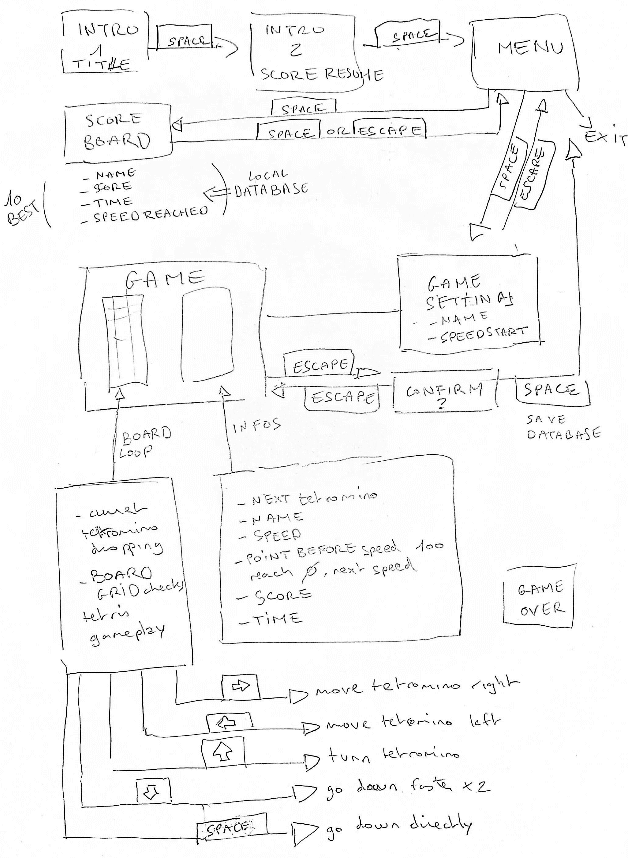 INTRO
1
TITLE
SPACE
INTRO
2
SCORE RESUME
SPACE
MENU
SCORE
BOARD
SPACE
SPACE OR ESCAPE
EXIT
10
BEST
- NAME
- SCORE
- TIME
- SPEED REACHED
LOCAL
DATABASE
SPACE
ESCAPE
GAME
GAME
SETTINGS
- NAME
- SPEEDSTART
ESCAPE
ESCAPE
CONFIRM
?
SPACE
SAVE
DATABASE
BOARD
LOOP
INFOS
- current
tetromino
dropping
- BOARD
GRID checks
tetris
gameplay
- NEXT tetromino
- NAME
- SPEED
- POINT BEFORE speed 100
reach Ø, next speed
- SCORE
- TIME
GAME
OVER
move tetromino right
move tetromino left
turn tetromino
go down faster x2
SPACE
go down directly